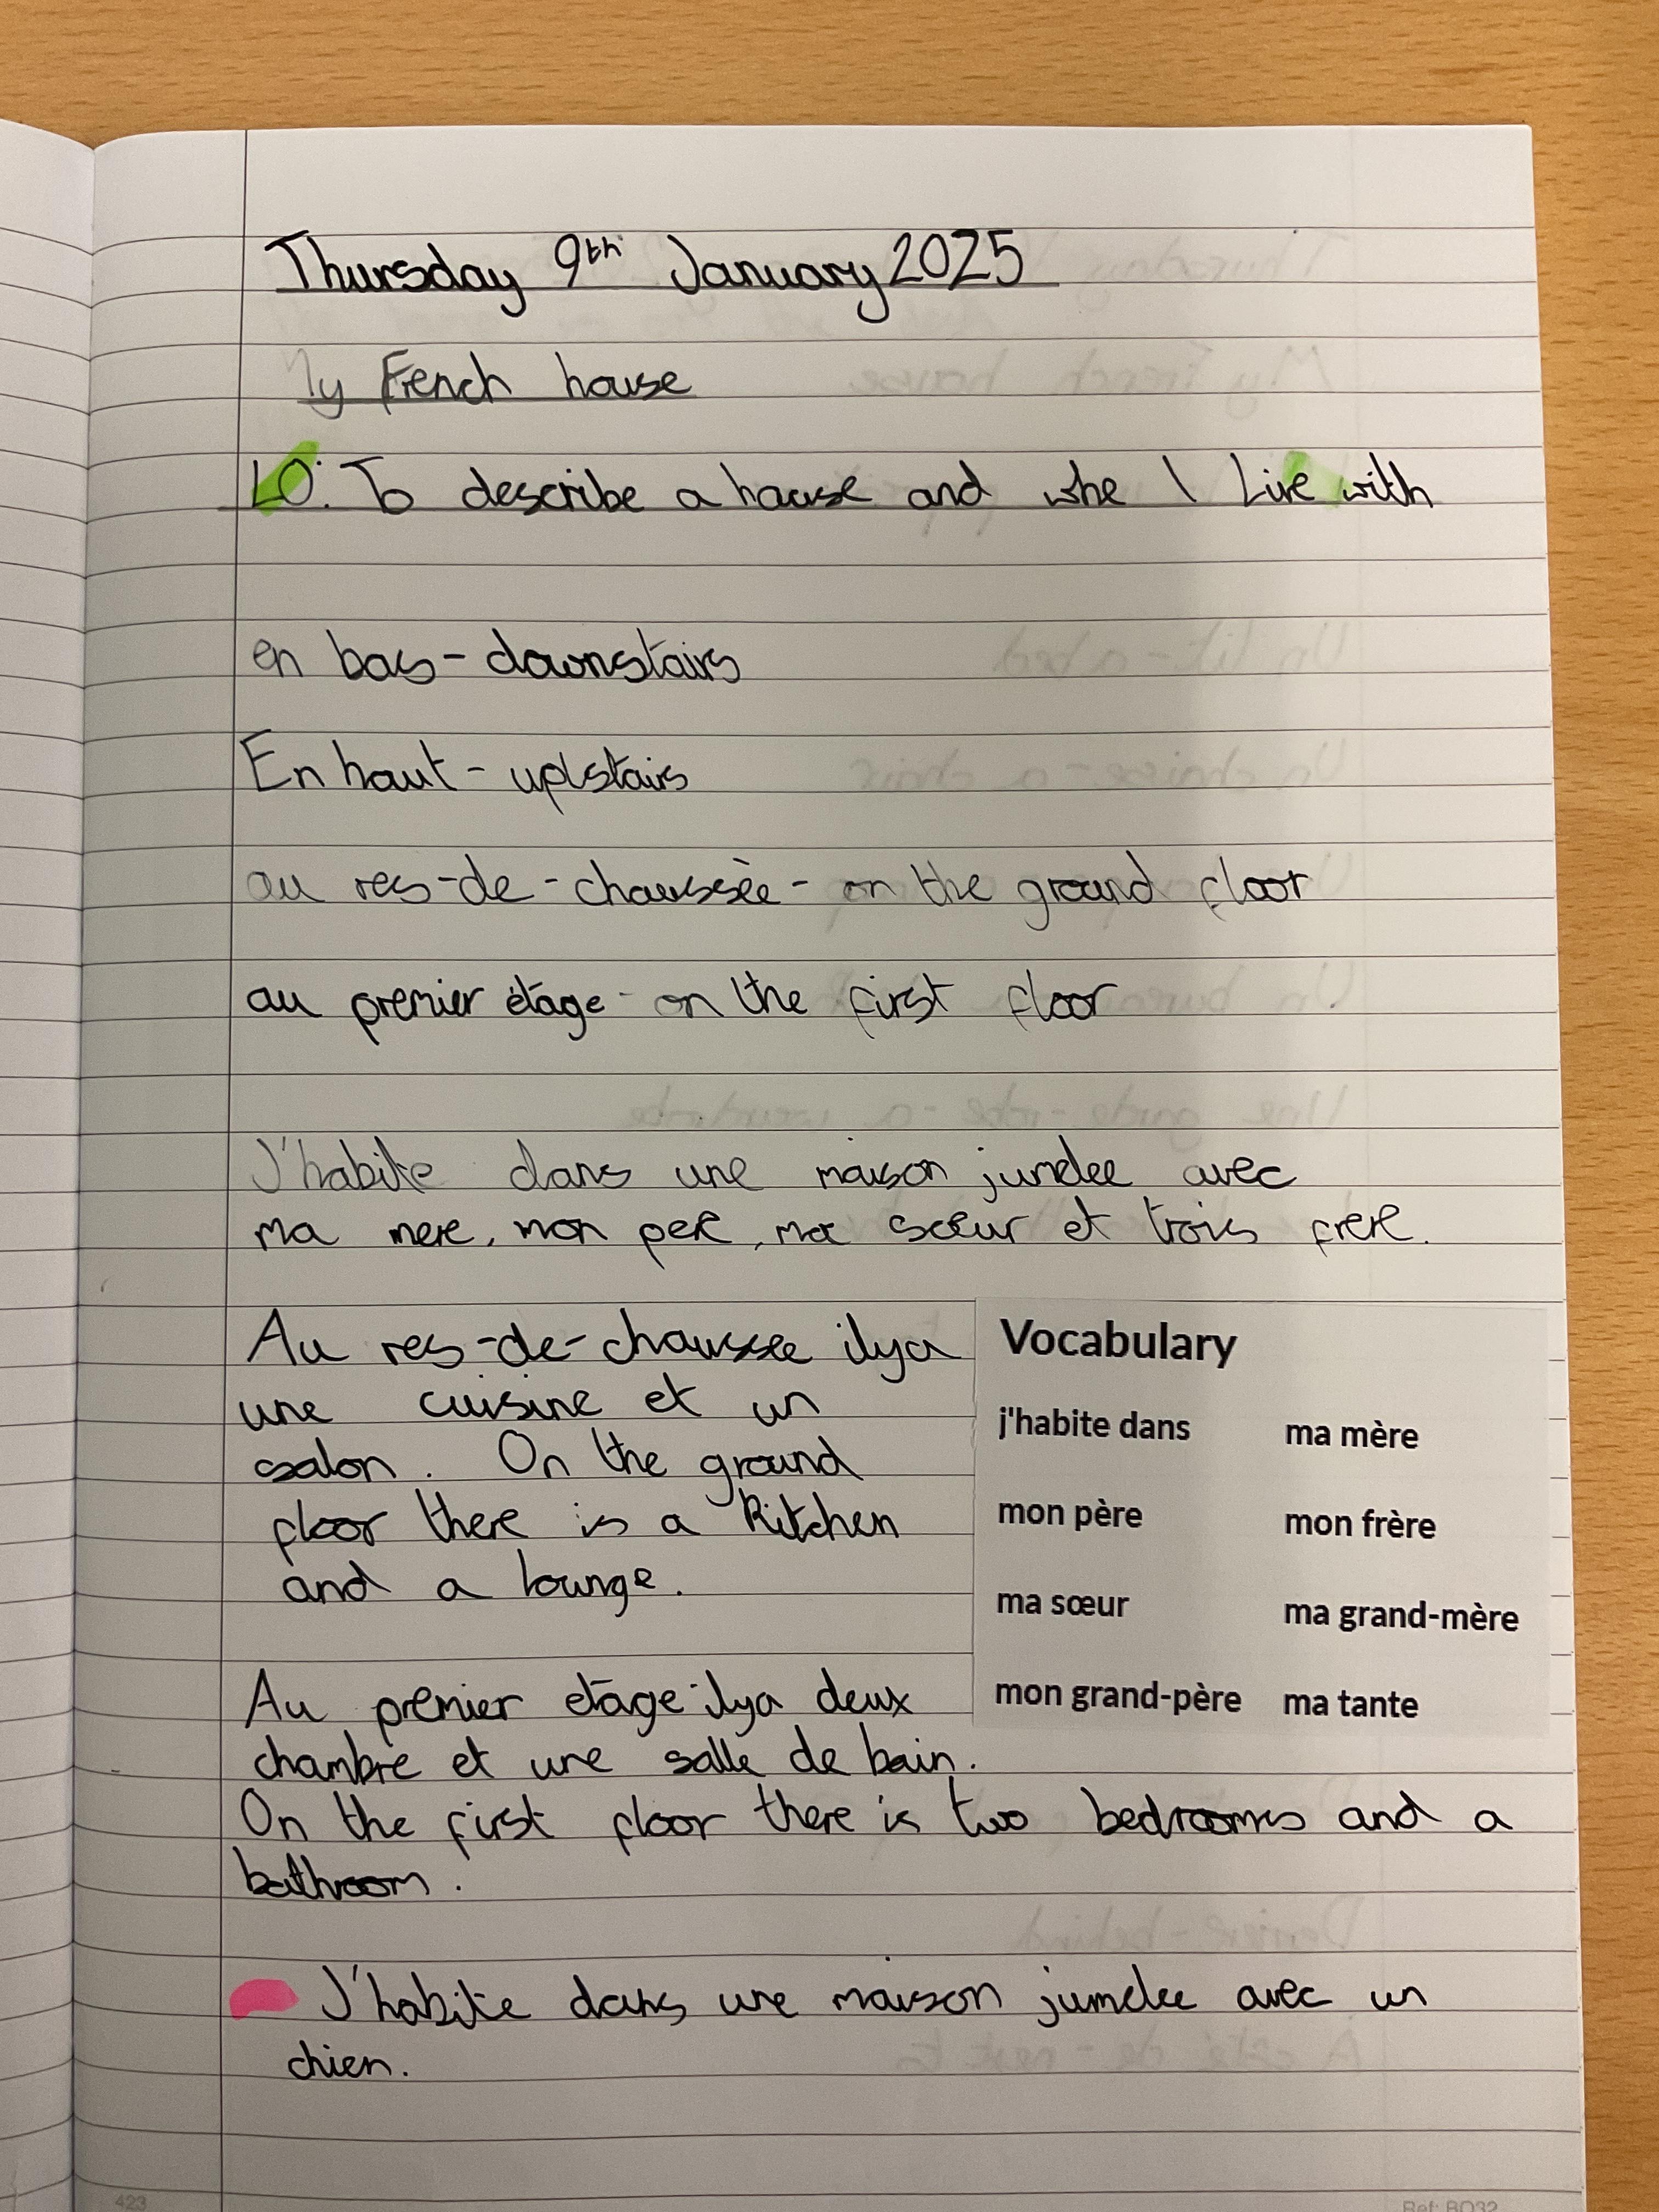 Thursday 9th January 2025
My French house
LO: To describe a house and whe I Live with
en bas - downstairs
En haut - upstairs
au res-de-chaussèe - on the ground floor
au premier étage - on the first floor
J'habite dans une maison jumelee avec
ma mere, mon pere, ma sœur et trois frere.
Au res-de-chaussee ilya
une cuisine et un
salon. On the ground
floor there is a Kitchen
and a lounge.
Vocabulary
j'habite dans ma mère
mon père mon frère
ma sœur ma grand-mère
mon grand-père ma tante
Au premier etage ilya deux
chambre et une salle de bain.
On the first floor there is two bedrooms and a
bathroom.
J'habite dans une maison jumelee avec un
chien.
423
Ref: BO32